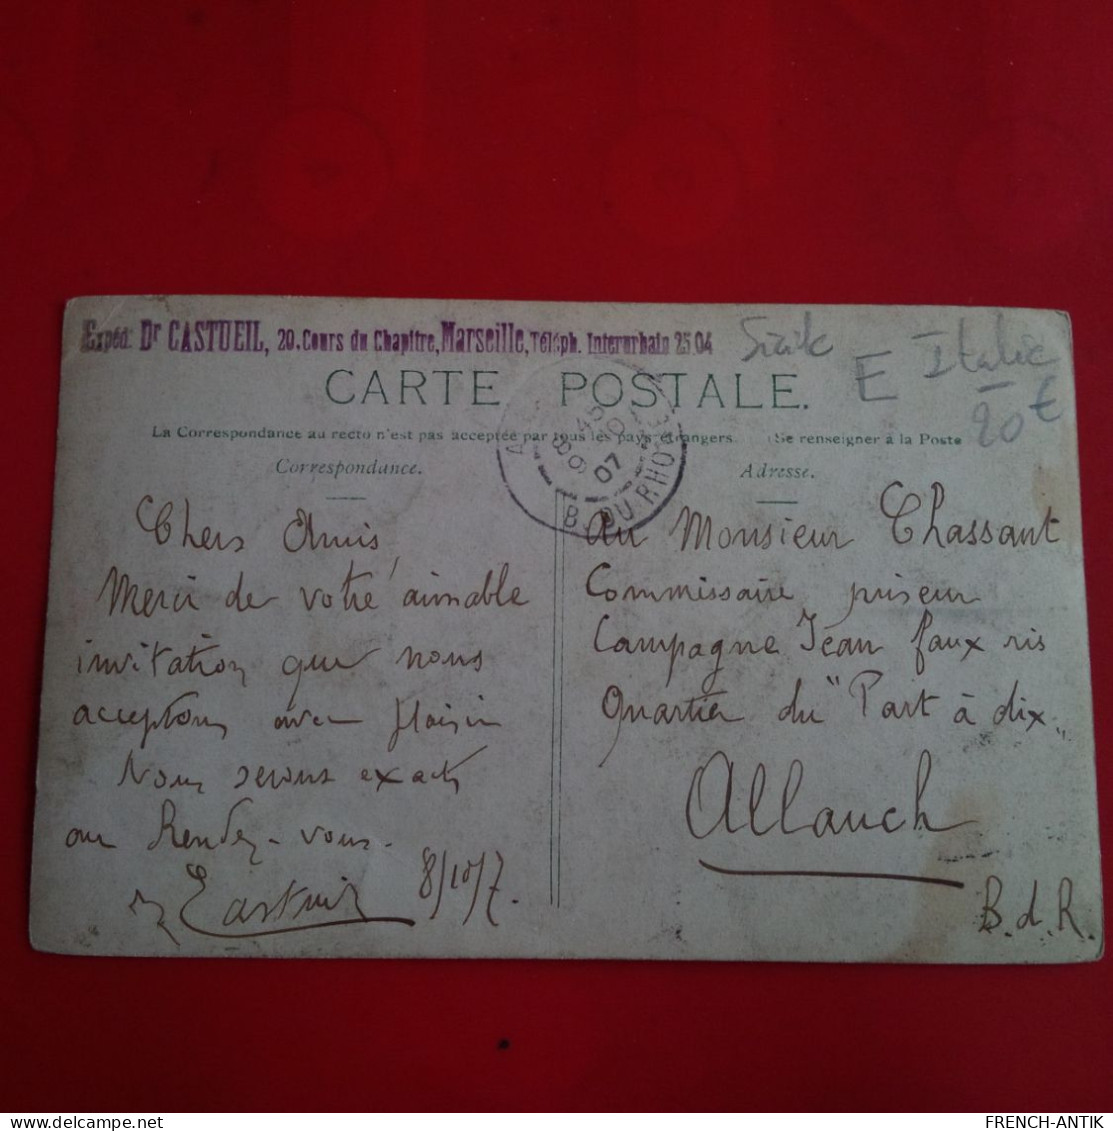 Expéd. Dr CASTUEIL, 20. Cours du Chapitre, Marseille, Téléph. Interurbain 25 04
Italie
E
20 €
CARTE POSTALE.
La Correspondance au recto n'est pas acceptée par tous les pays étrangers. (Se renseigner à la Poste
Correspondance.
Adresse.
45
07
B. DU RHONE
Chers Amis
Merci de votre aimable
invitation que nous
acceptons avec plaisir
Nous serons exacts
au Rendez-vous.
Castueil 8/10/7.
Au Monsieur Chassant
Commissaire priseur
Campagne Jean faux ris
Quartier du "Part à dix"
Allauch
B. d. R.
FRENCH-ANTIK